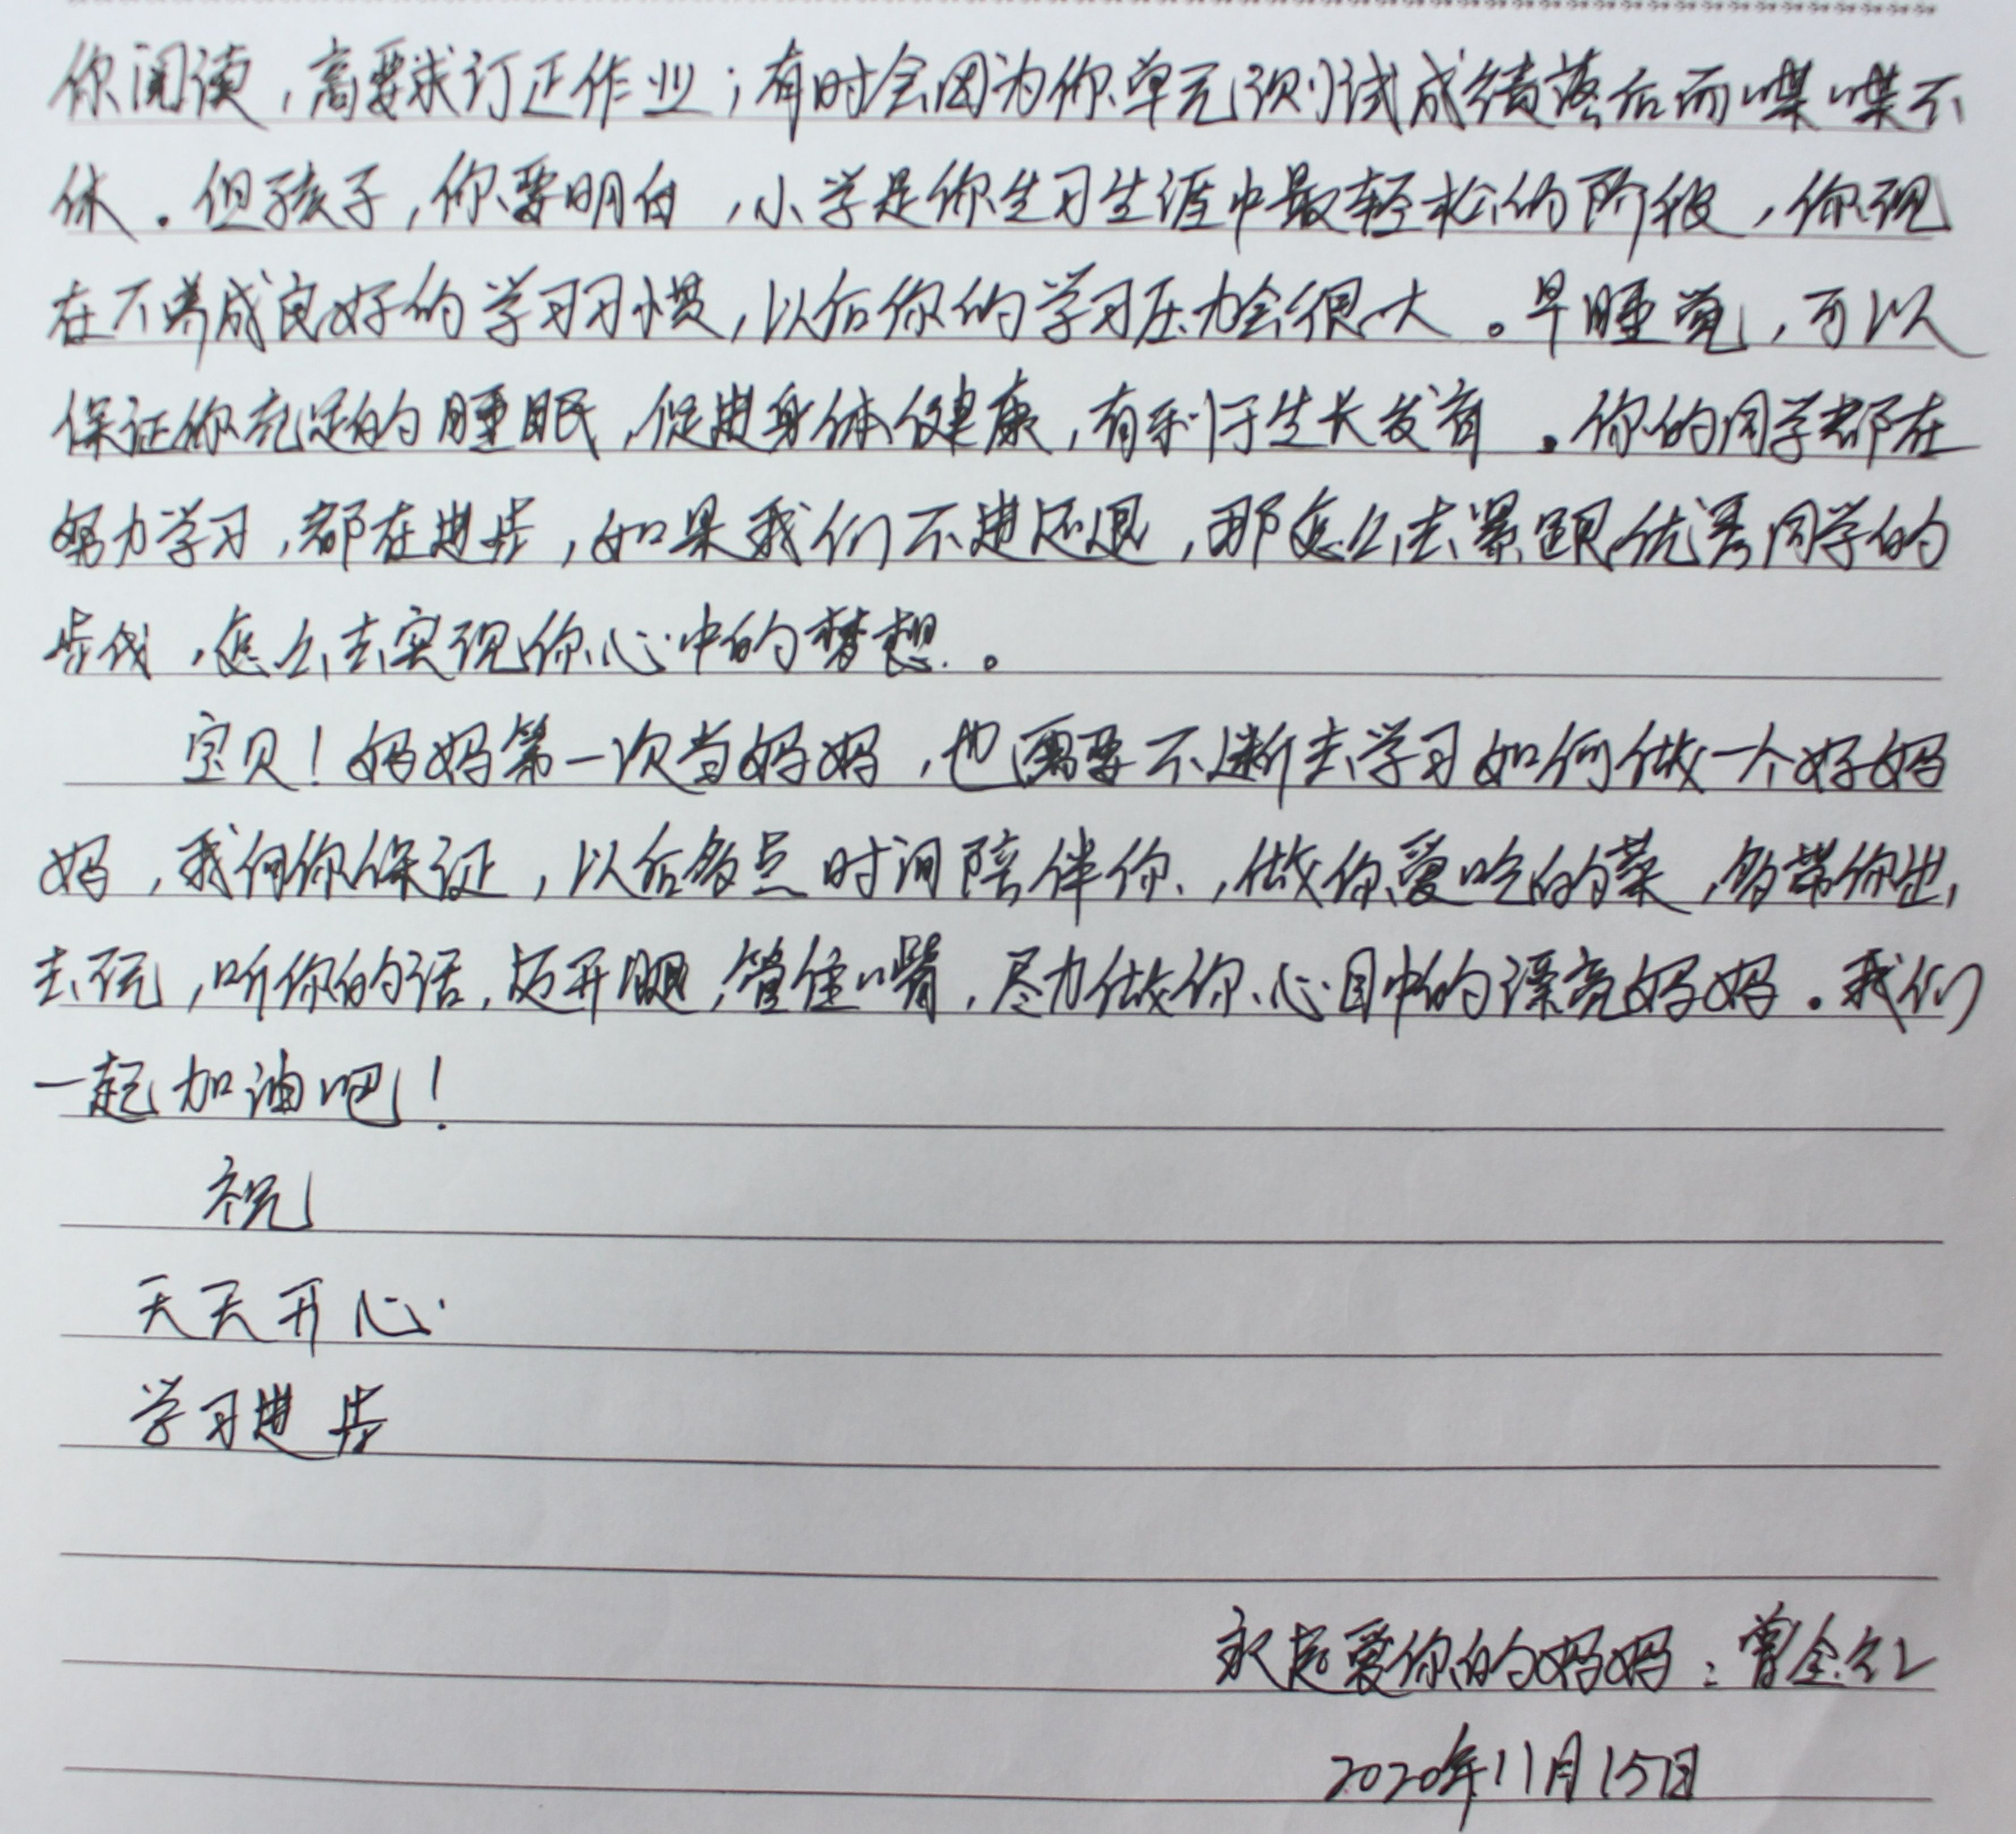 你阅读，高要求订正作业；有时会因为你单元测试成绩落后而喋喋不
休。但孩子，你要明白，小学是你生习生涯中最轻松的阶段，你现
在不养成良好的学习习惯，以后你的学习压力会很大。早睡觉，可以
保证你充足的睡眠，促进身体健康，有利于生长发育。你的同学都在
努力学习，都在进步，如果我们不进还退，那怎么去紧跟优秀同学的
步伐，怎么去实现你心中的梦想。
宝贝！妈妈第一次当妈妈，也需要不断去学习如何做一个好妈
妈，我向你保证，以后多点时间陪伴你，做你爱吃的菜，多带你出
去玩，听你的话，迈开腿，管住嘴，尽力做你心目中的漂亮妈妈。我们
一起加油吧！
祝
天天开心
学习进步
永远爱你的妈妈：曾金红
2020年11月15日